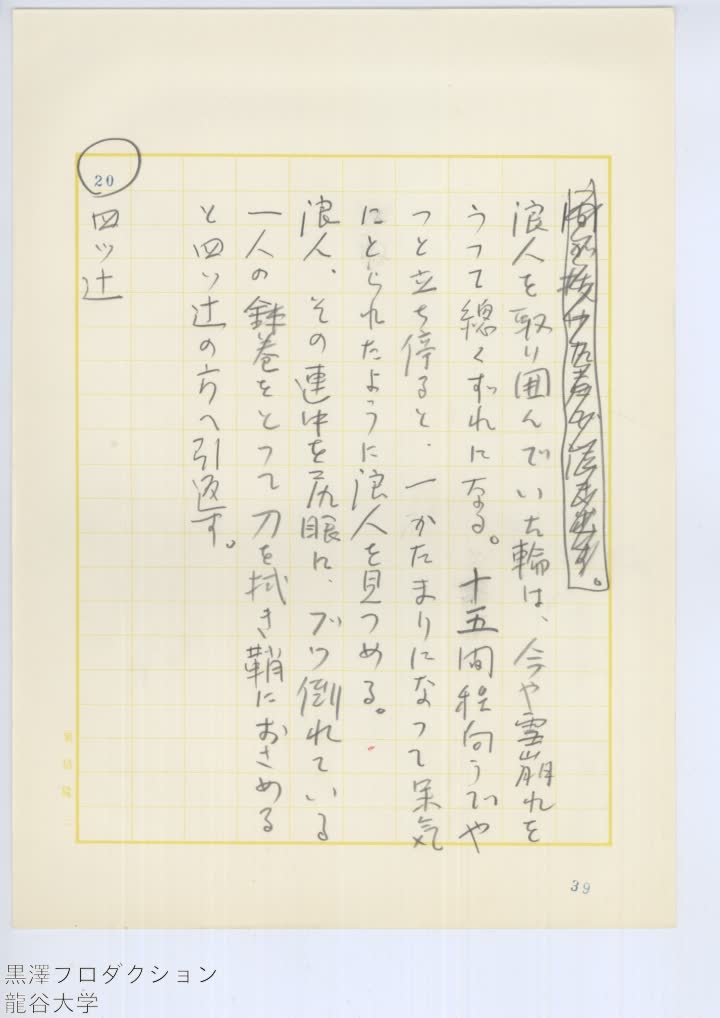 浪人を取り囲んでいた輪は、今や雪崩れを
うつて總くずれになる。十五間程向うでや
つと立ち停ると、一かたまりになつて呆気
にとられたように浪人を見つめる。
浪人、その連中を尻眼に、ブツ倒れている
一人の鉢巻をとつて刀を拭き鞘におさめる
と四ツ辻の方へ引返す。
20
四ツ辻
39
黒澤プロダクション
龍谷大学